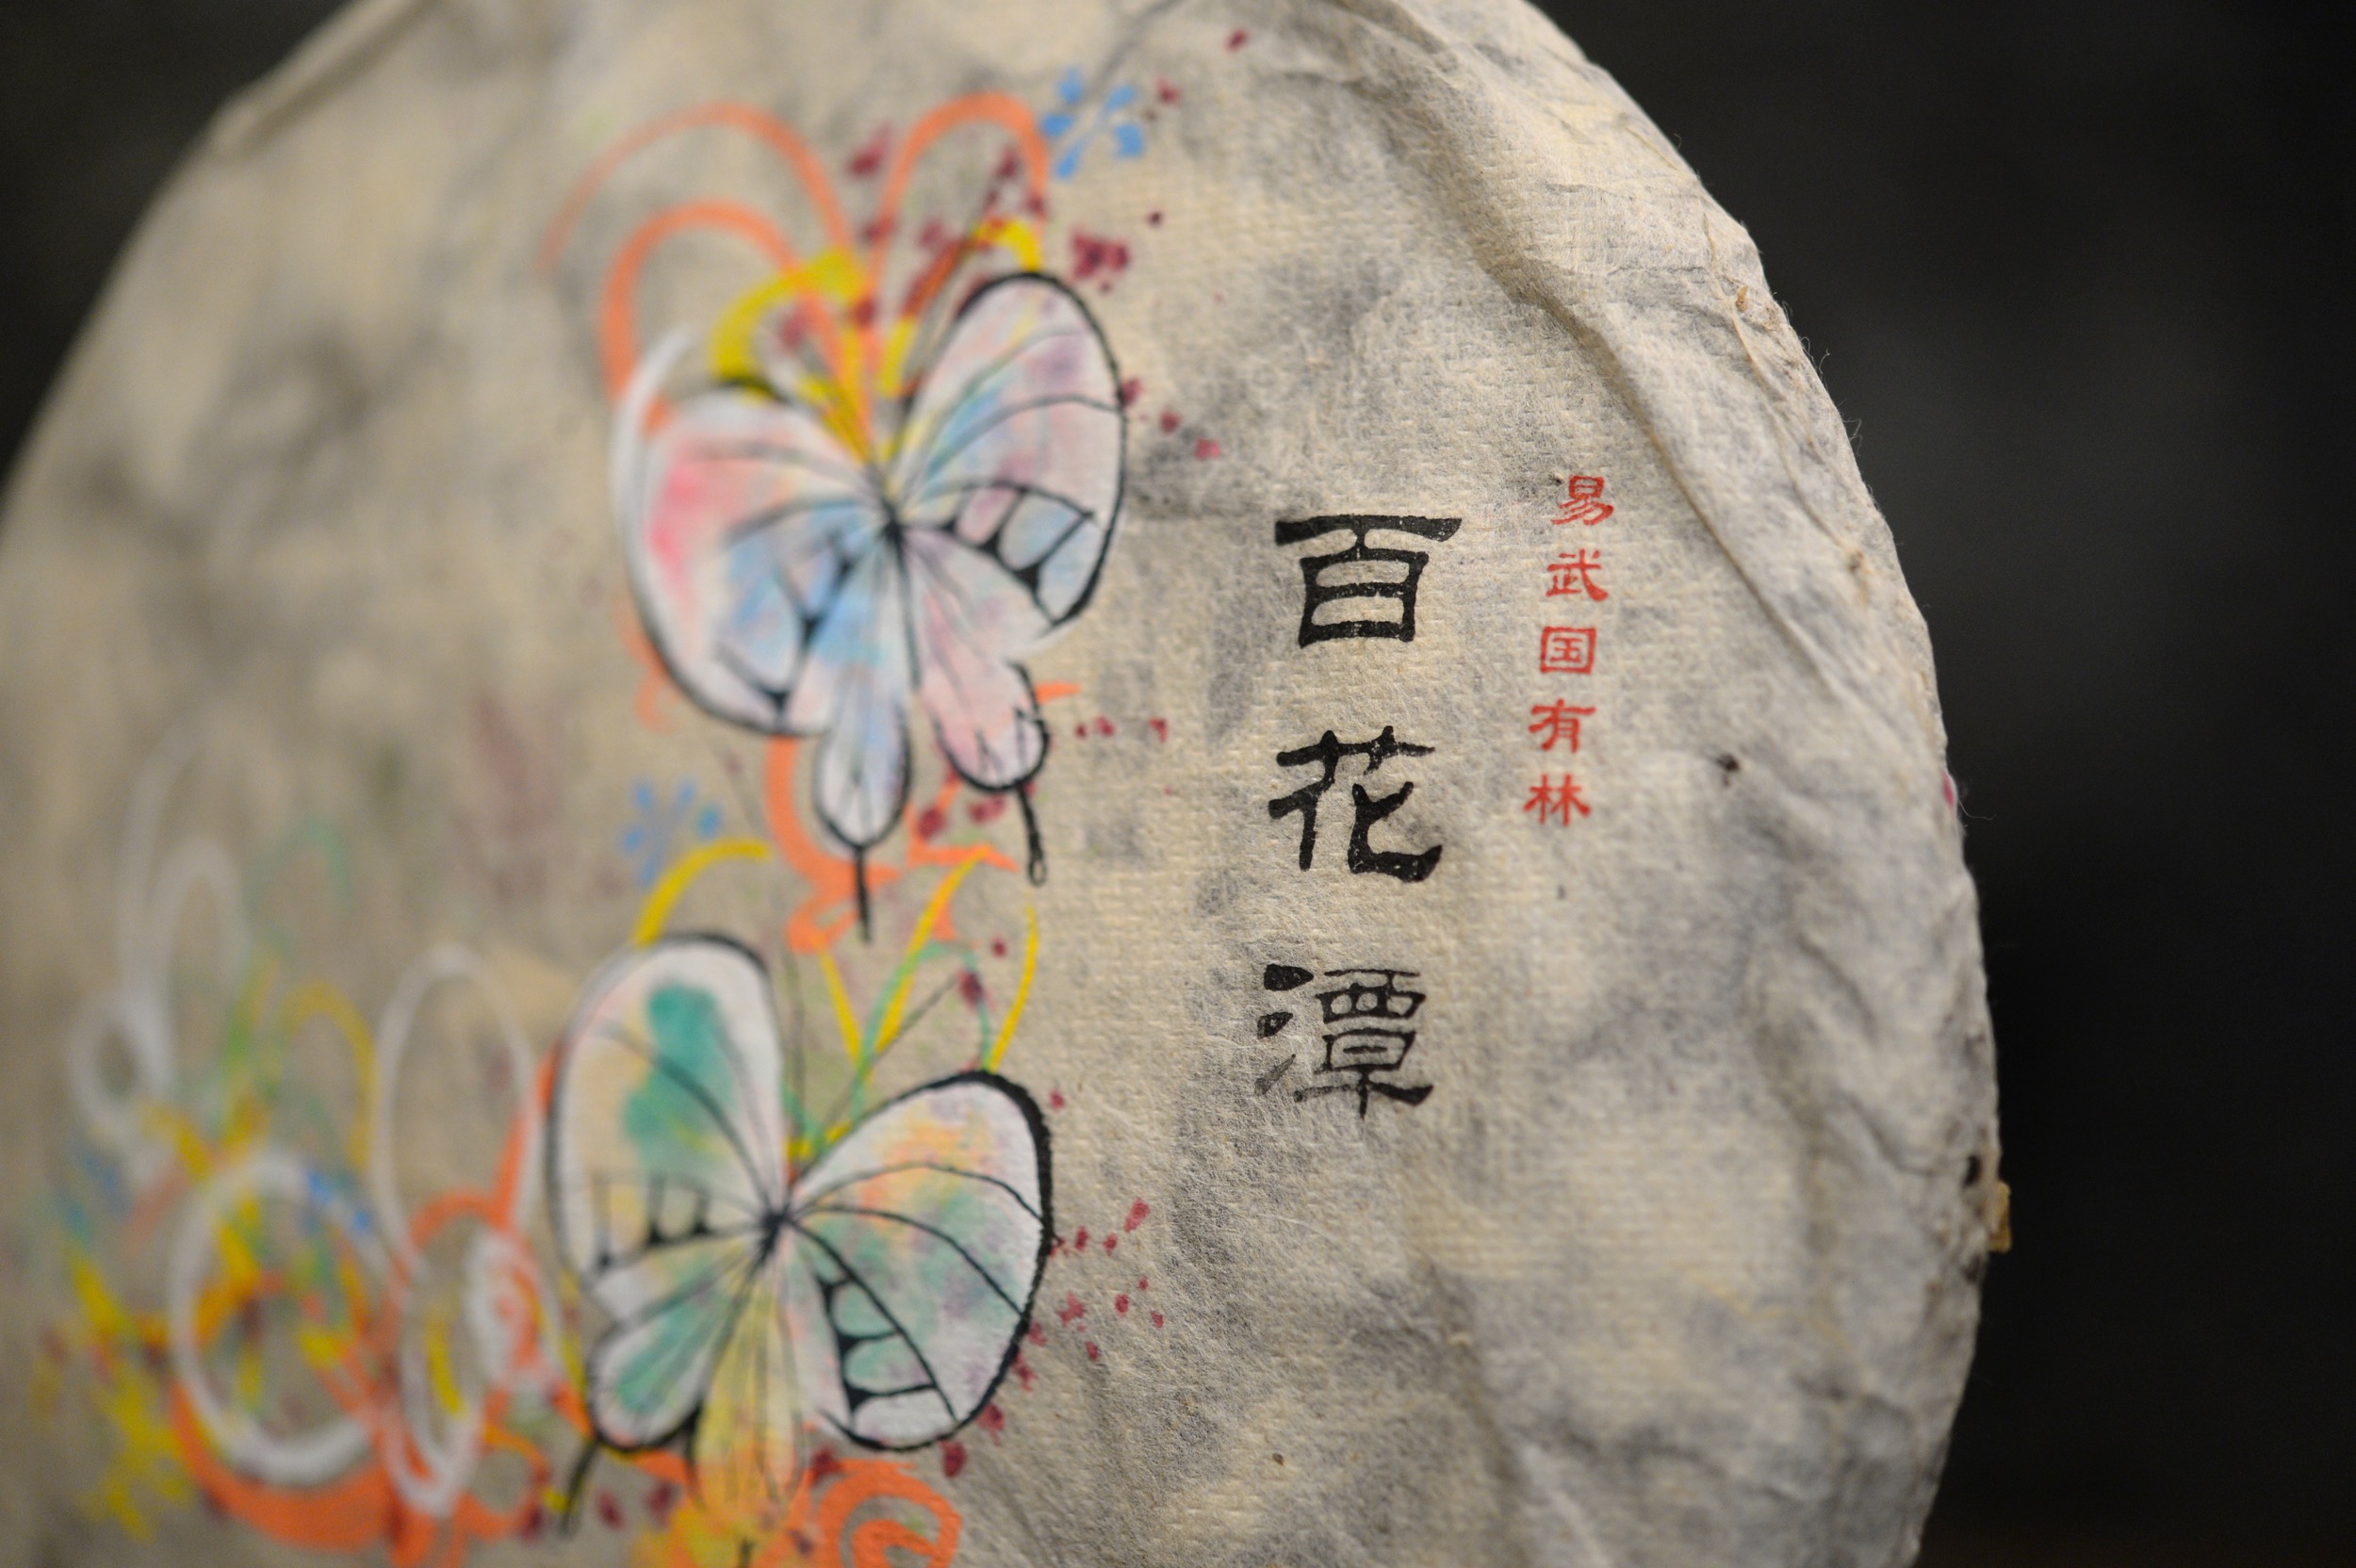 易武国有林
百花潭